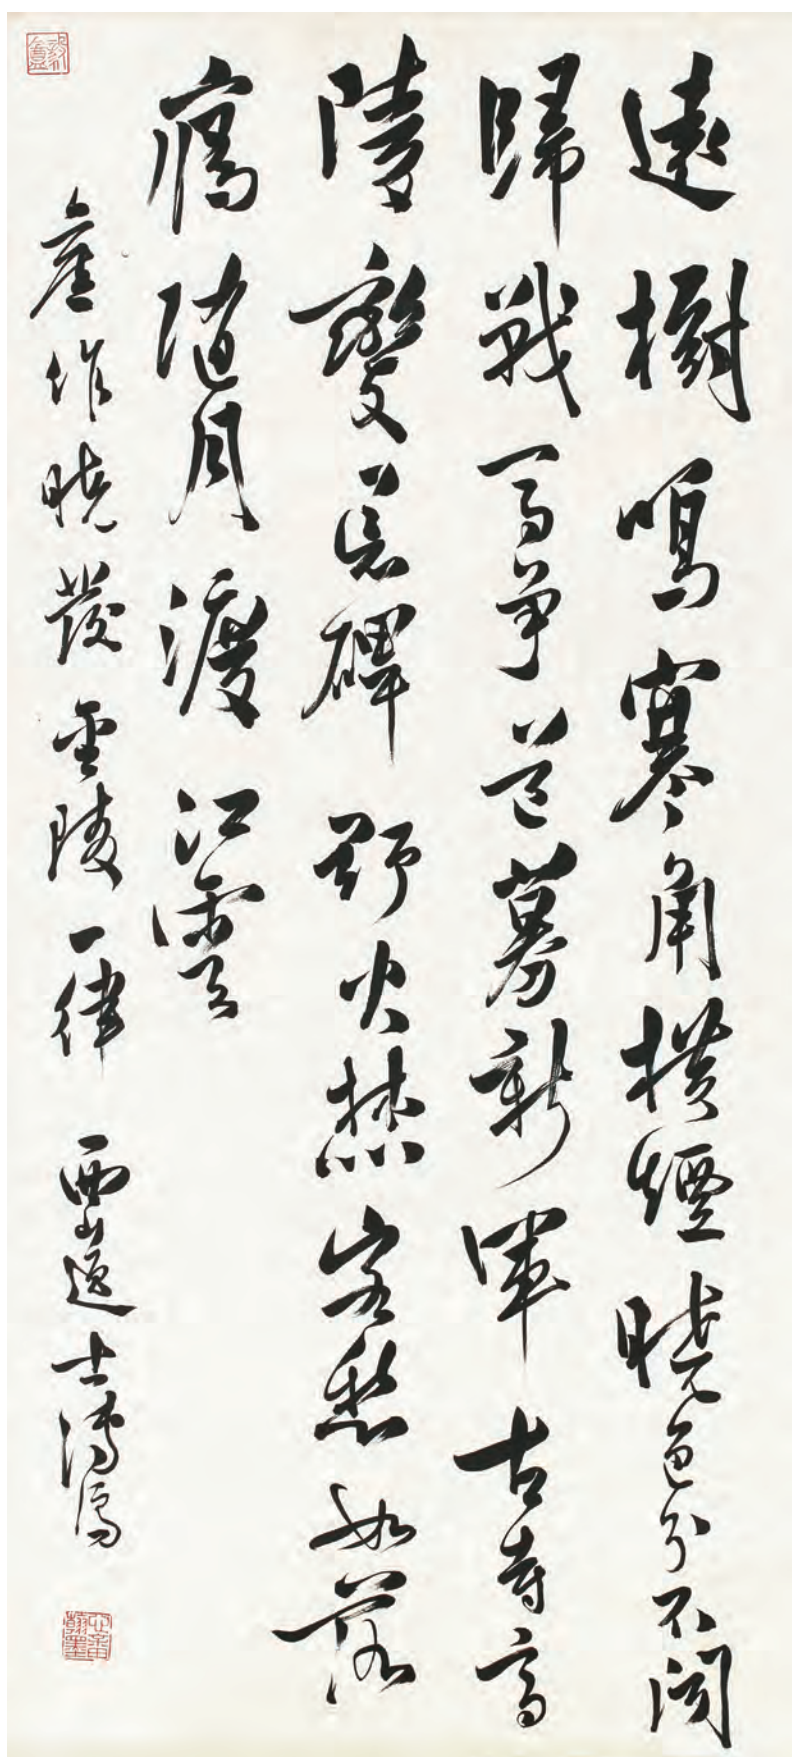 遠樹鳴寒角橫煙曉色分不聞
歸戰馬爭道募新軍古寺高
陵變荒碑野火焚客愁如落
鴈隨月渡江雲
舊作曉發金陵一律 西山逸士溥儒
心畬翰墨